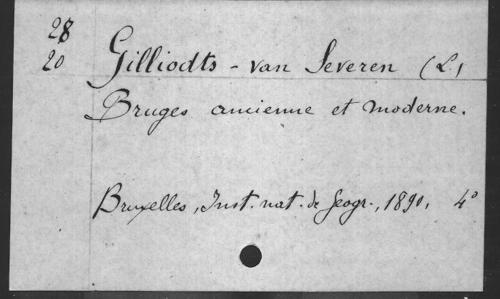 28
20
Gilliodts - van Severen (L.)
Bruges ancienne et moderne.
Bruxelles, Inst. nat. de Geogr., 1890, 4°